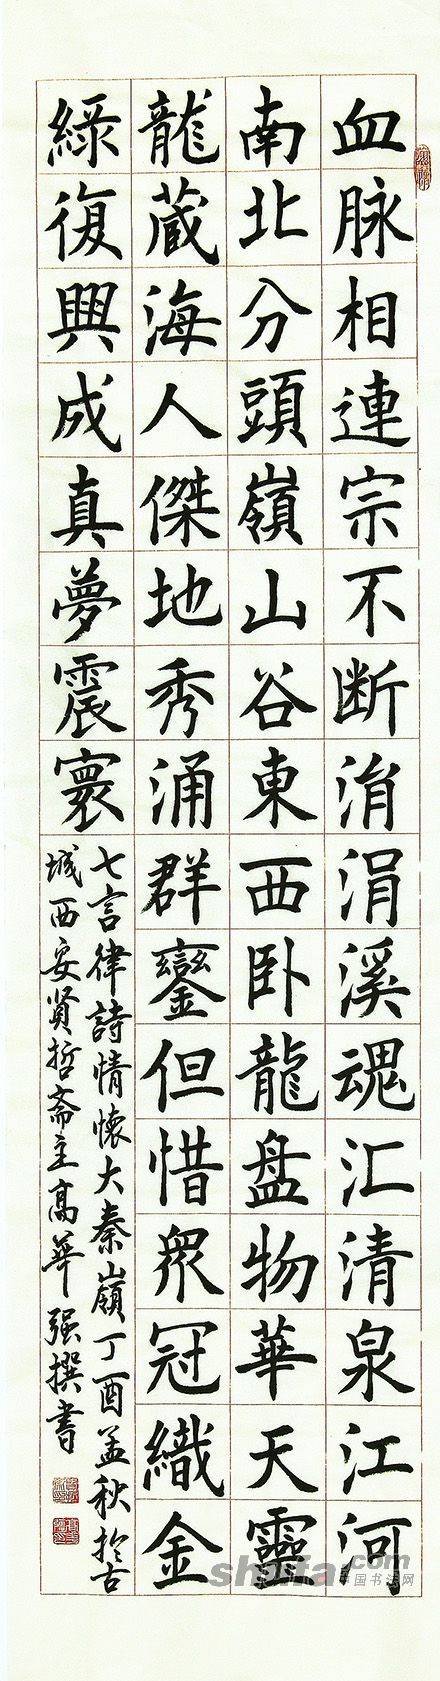 血脉相連宗不断涓涓溪魂汇清泉江河
南北分頭嶺山谷東西卧龍盘物華天靈
龍蔵海人傑地秀涌群鑾但惜眾冠織金
綠復興成真夢震寰
七言律詩情懷大秦嶺丁酉孟秋於古
城西安贤哲斋主高華强撰書
shufa.com
中国书法网